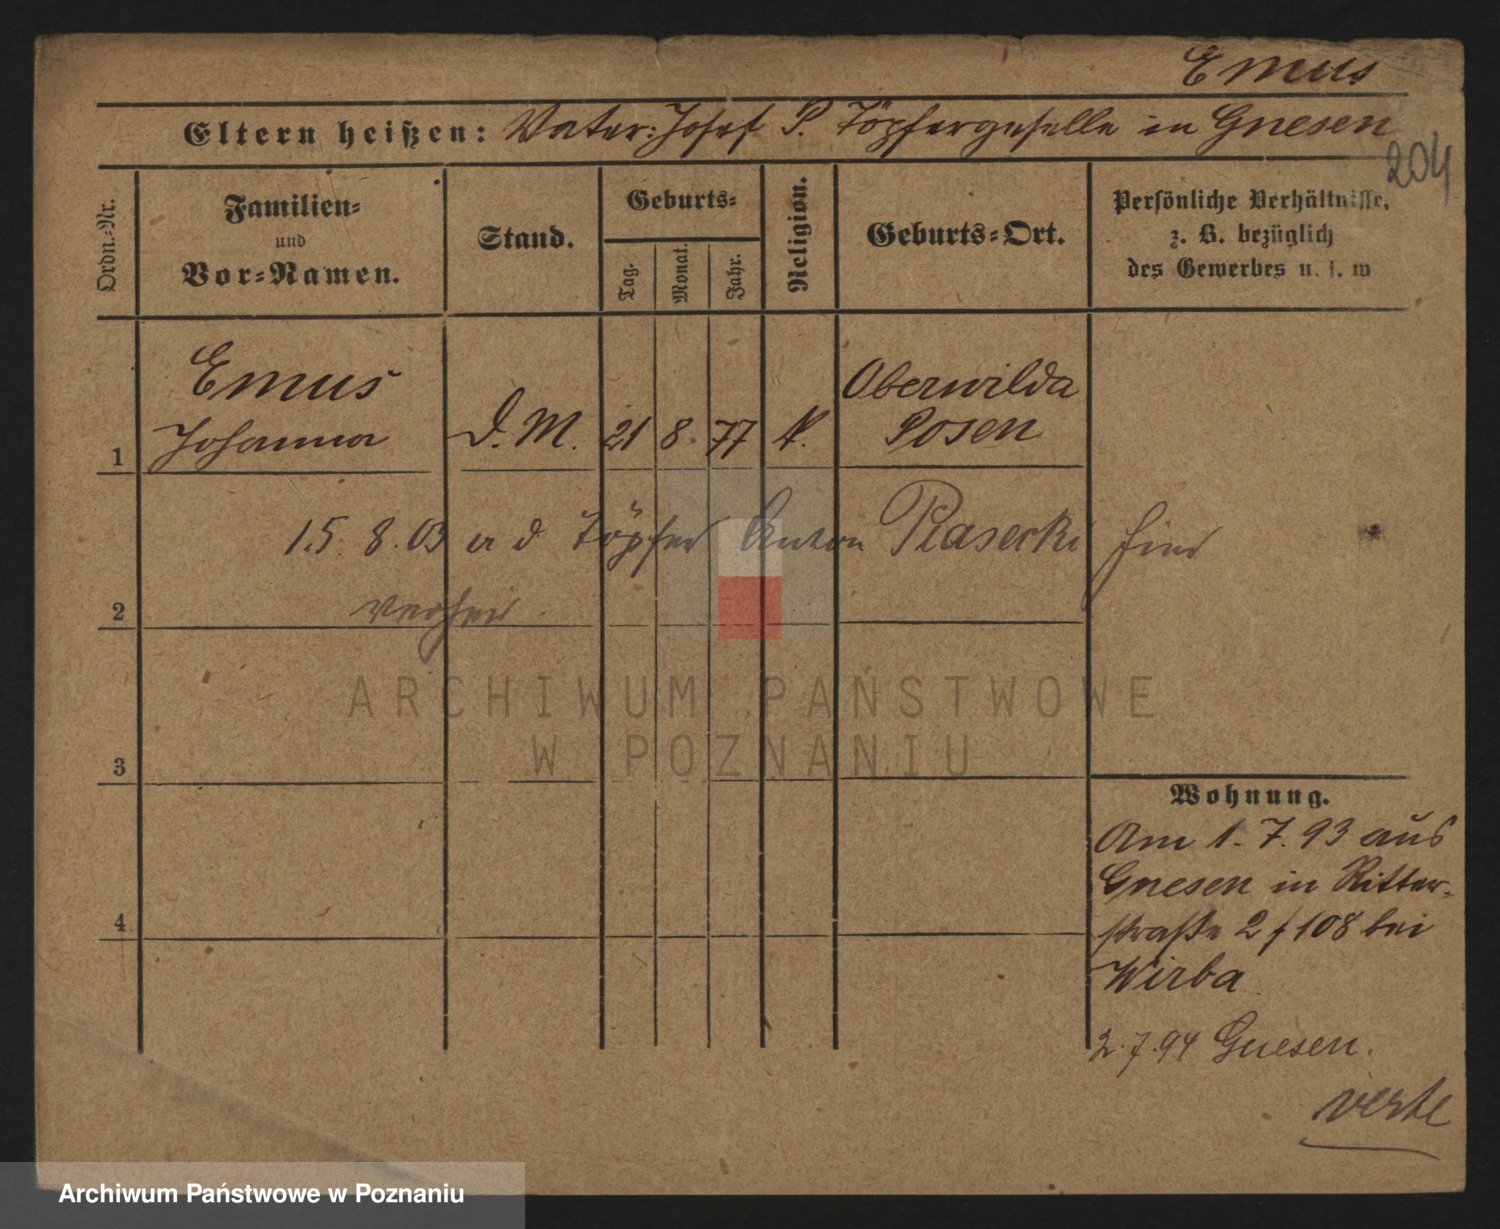 Emus
Eltern heißen: Vater: Josef P. Töpfergeselle in Gnesen
204
Ordn.-Nr.
Familien-
und
Vor-Namen.
Stand.
Geburts-
Tag.
Monat.
Jahr.
Religion.
Geburts-Ort.
Persönliche Verhältnisse,
z. B. bezüglich
des Gewerbes u. s. w
Emus
Oberwilda
1 Johanna D. M. 21 8. 77 K. Posen
15. 8. 03 a d Töpfer Anton Piasecki hier
2 verheir
3
4
Wohnung.
Am 1. 7. 93 aus
Gnesen in Ritter-
straße 2 f 108 bei
Wirba
2. 7. 94 Gnesen.
verte
ARCHIWUM PAŃSTWOWE
W POZNANIU
Archiwum Państwowe w Poznaniu